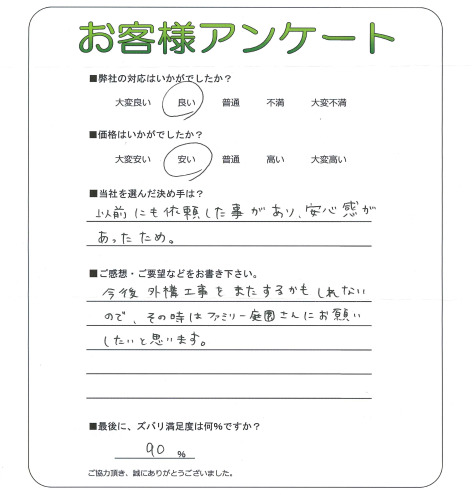 お客様アンケート
■弊社の対応はいかがでしたか？
大変良い 良い 普通 不満 大変不満
■価格はいかがでしたか？
大変安い 安い 普通 高い 大変高い
■当社を選んだ決め手は？
以前にも依頼した事があり、安心感が
あったため。
■ご感想・ご要望などをお書き下さい。
今後 外構工事をまたするかもしれない
ので、その時はファミリー庭園さんにお願い
したいと思います。
■最後に、ズバリ満足度は何%ですか？
90 %
ご協力頂き、誠にありがとうございました。